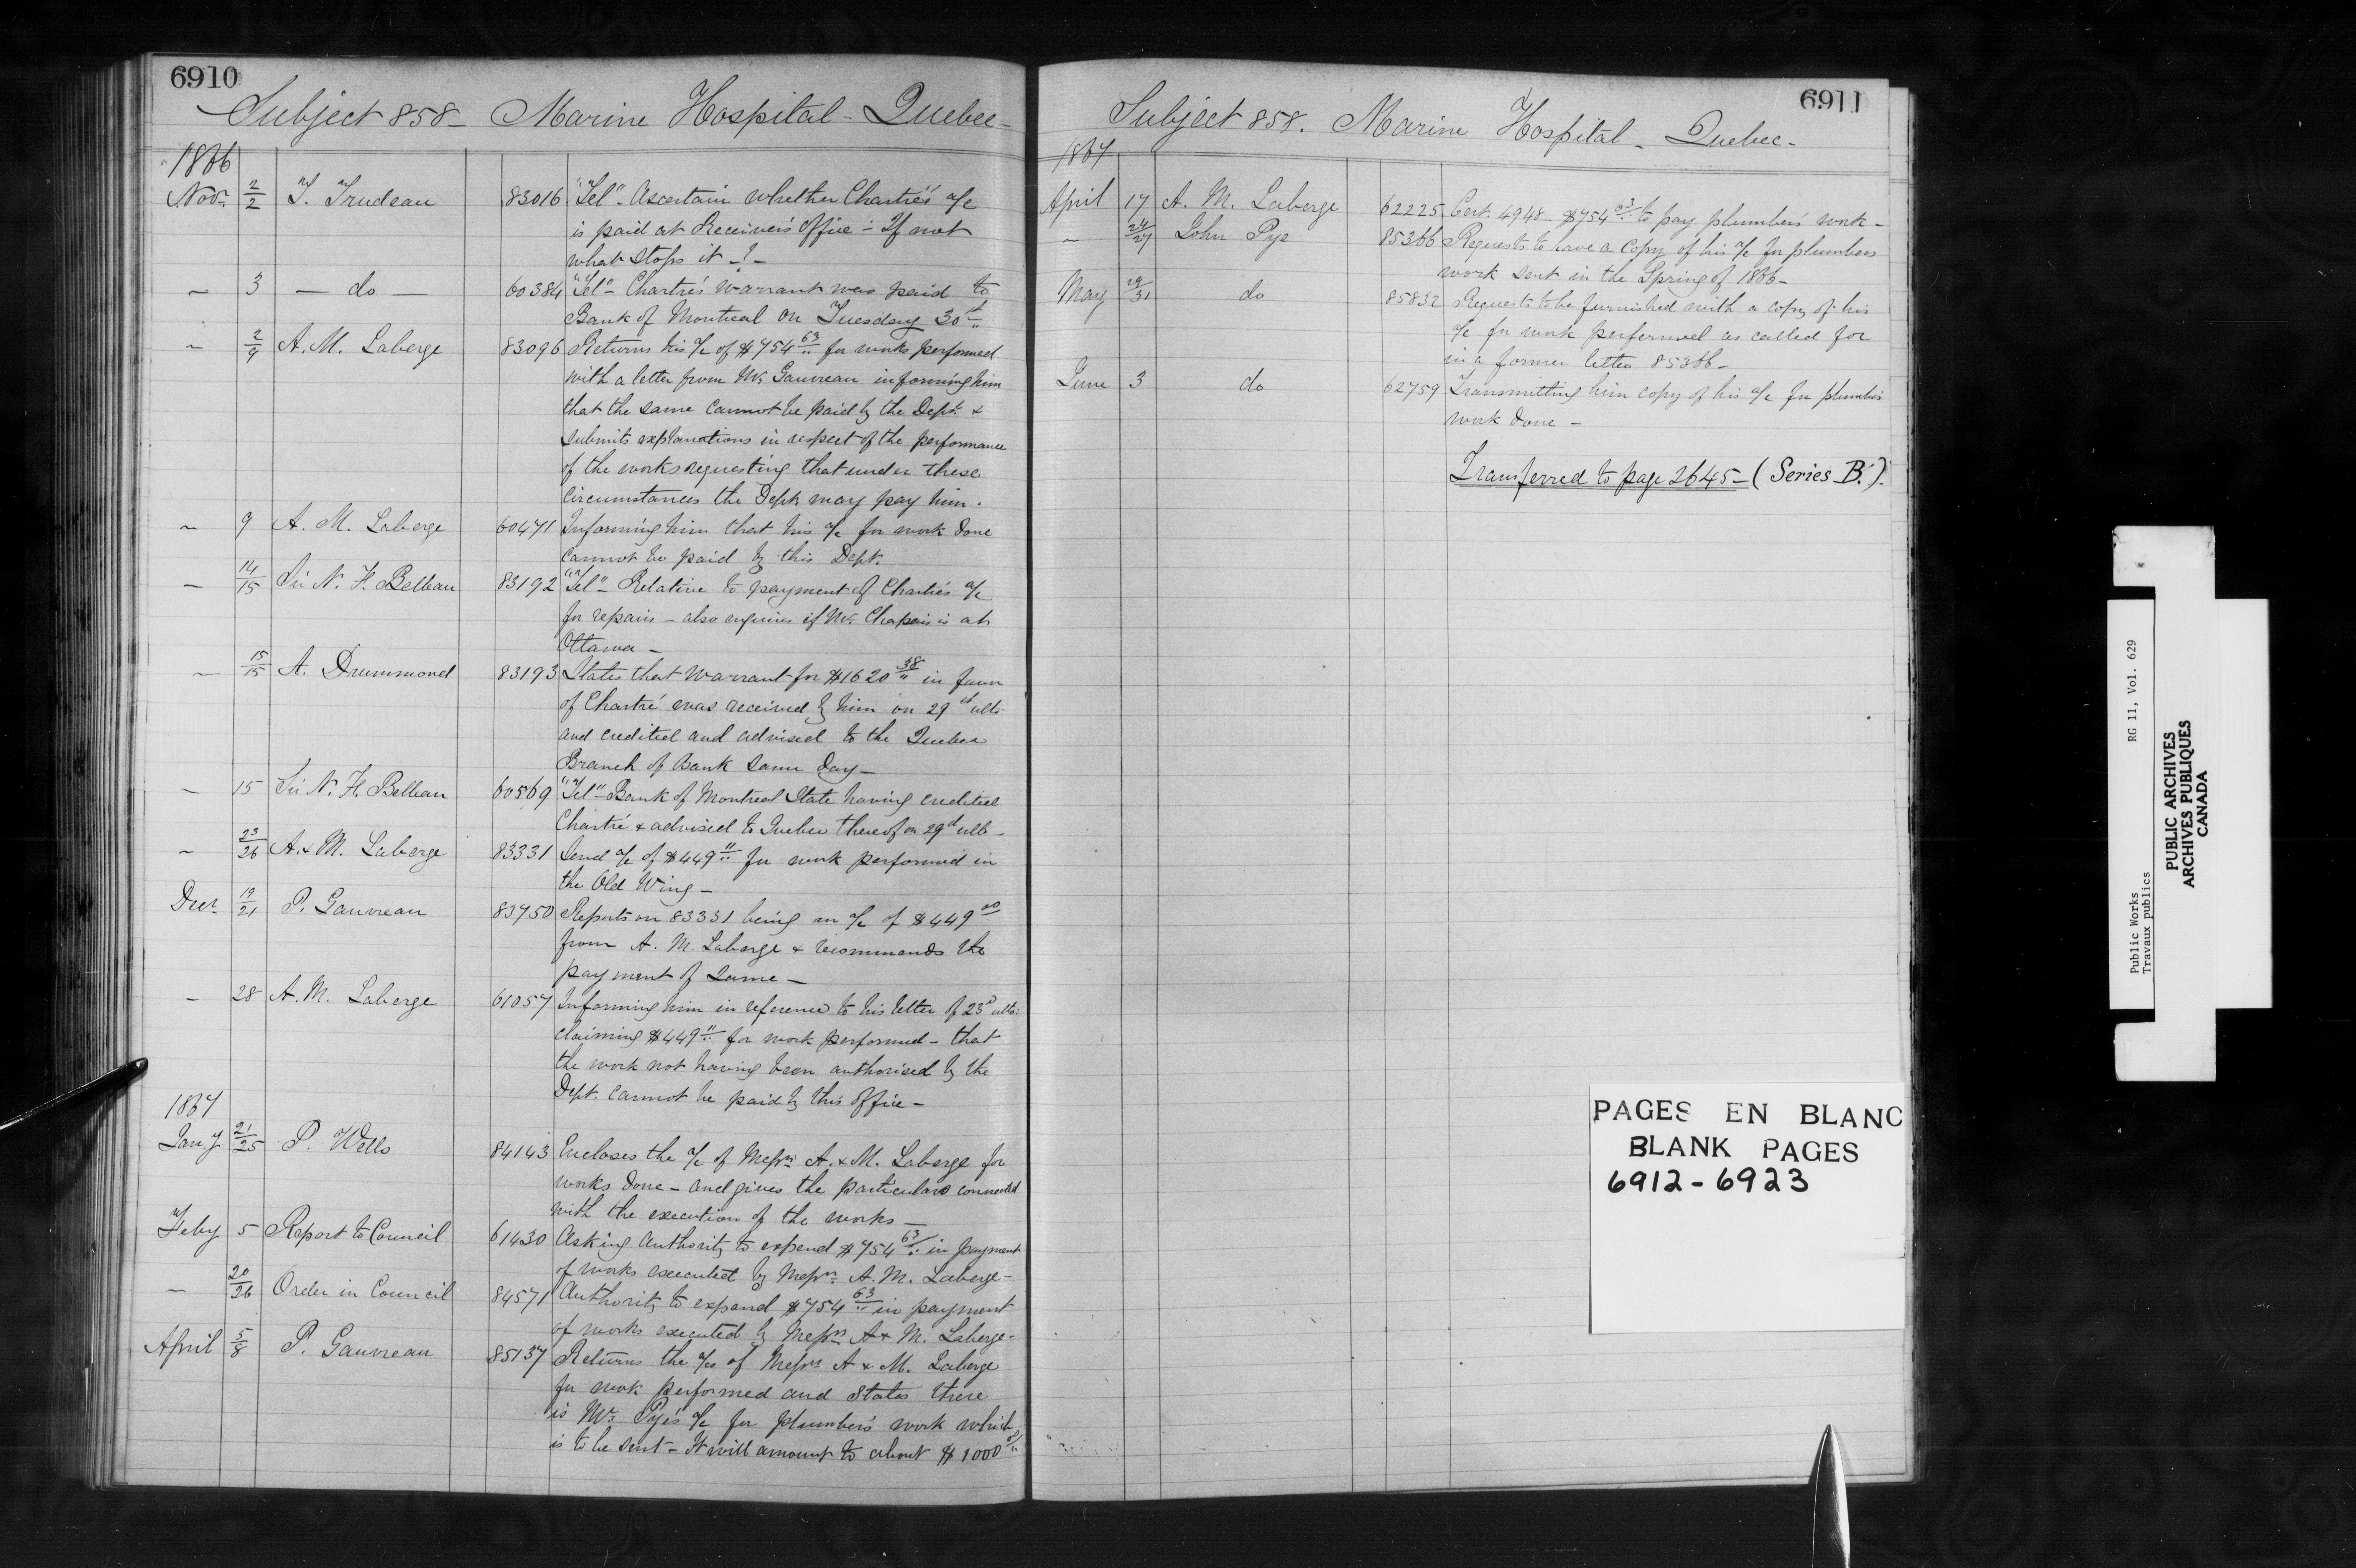 6910
Subject 858 - Marine Hospital - Quebec -
1866
Nov. 2/2 T. Trudeau 83016 "Tel" - Ascertain whether Chartré's a/c
is paid at Receiver's Office - If not
what stops it - ? -
~ 3 — do — 60384 "Tel" - Chartré's warrant was paid to
Bank of Montreal on Tuesday 30th
~ 2/9 A. M. Laberge 83096 Returns his a/c of $754 63/.. for works performed
with a letter from Mr. Gauvreau informing him
that the same cannot be paid by the Dept. &
submits explanations in respect of the performance
of the works requesting that under these
circumstances the Dept. may pay him.
~ 9 A. M. Laberge 60471 Informing him that his a/c for work done
cannot be paid by this Dept.
— 14/15 Sir N. F. Belleau 83192 "Tel" - Relative to payment of Chartré's a/c
for repairs - also enquires if Mr. Chapais is at
Ottawa -
— 15/15 A. Drummond 83193 States that warrant for $1620 38/.. in favor
of Chartré was received by him on 29th ulto.
and credited and advised to the Quebec
Branch of Bank same day -
— 15 Sir N. F. Belleau 60569 "Tel" - Bank of Montreal state having credited
Chartré & advised to Quebec thereof on 29th ulto -
~ 23/26 A. & M. Laberge 83331 Send a/c of $449 " for work performed in
the Old Wing -
Decr. 19/21 P. Gauvreau 83750 Reports on 83331 being an a/c of $449 00
from A. M. Laberge & recommends the
payment of same -
— 28 A. M. Laberge 61057 Informing him in reference to his letter of 23d ulto:
claiming $449 " for work performed - that
the work not having been authorised by the
Dept. cannot be paid by this office -
1867
Jany 21/25 P. Wells 84143 Encloses the a/c of Messrs A. & M. Laberge for
works done - and gives the particulars connected
with the execution of the works -
Feby 5 Report to Council 61430 Asking authority to expend $754 63/.. in payment
of works executed by Messrs. A. M. Laberge -
— 20/26 Order in Council 84571 Authority to expend $754 63/.. in payment
of works executed by Messrs A & M. Laberge -
April 5/8 P. Gauvreau 85137 Returns the a/cs of Messrs A & M. Laberge
for work performed and states there
is Mr. Pye's a/c for plumber's work which
is to be sent - It will amount to about $1000
6911
Subject 858. Marine Hospital - Quebec -
1867
April 17 A. M. Laberge 62225 Cert. 4948 - $754 63/.. to pay plumbers' work -
~ 24/27 John Pye 85366 Requests to have a copy of his a/c for plumbers
work sent in the Spring of 1866 -
May 29/31 do 85832 Requests to be furnished with a copy of his
a/c for work performed as called for
in a former letter 85366 -
June 3 do 62759 Transmitting him copy of his a/c for plumbers
work done -
Transferred to page 2645 - (Series B.)
PAGES EN BLANC
BLANK PAGES
6912-6923
Public Works RG 11, Vol. 629
Travaux publics
PUBLIC ARCHIVES
ARCHIVES PUBLIQUES
CANADA